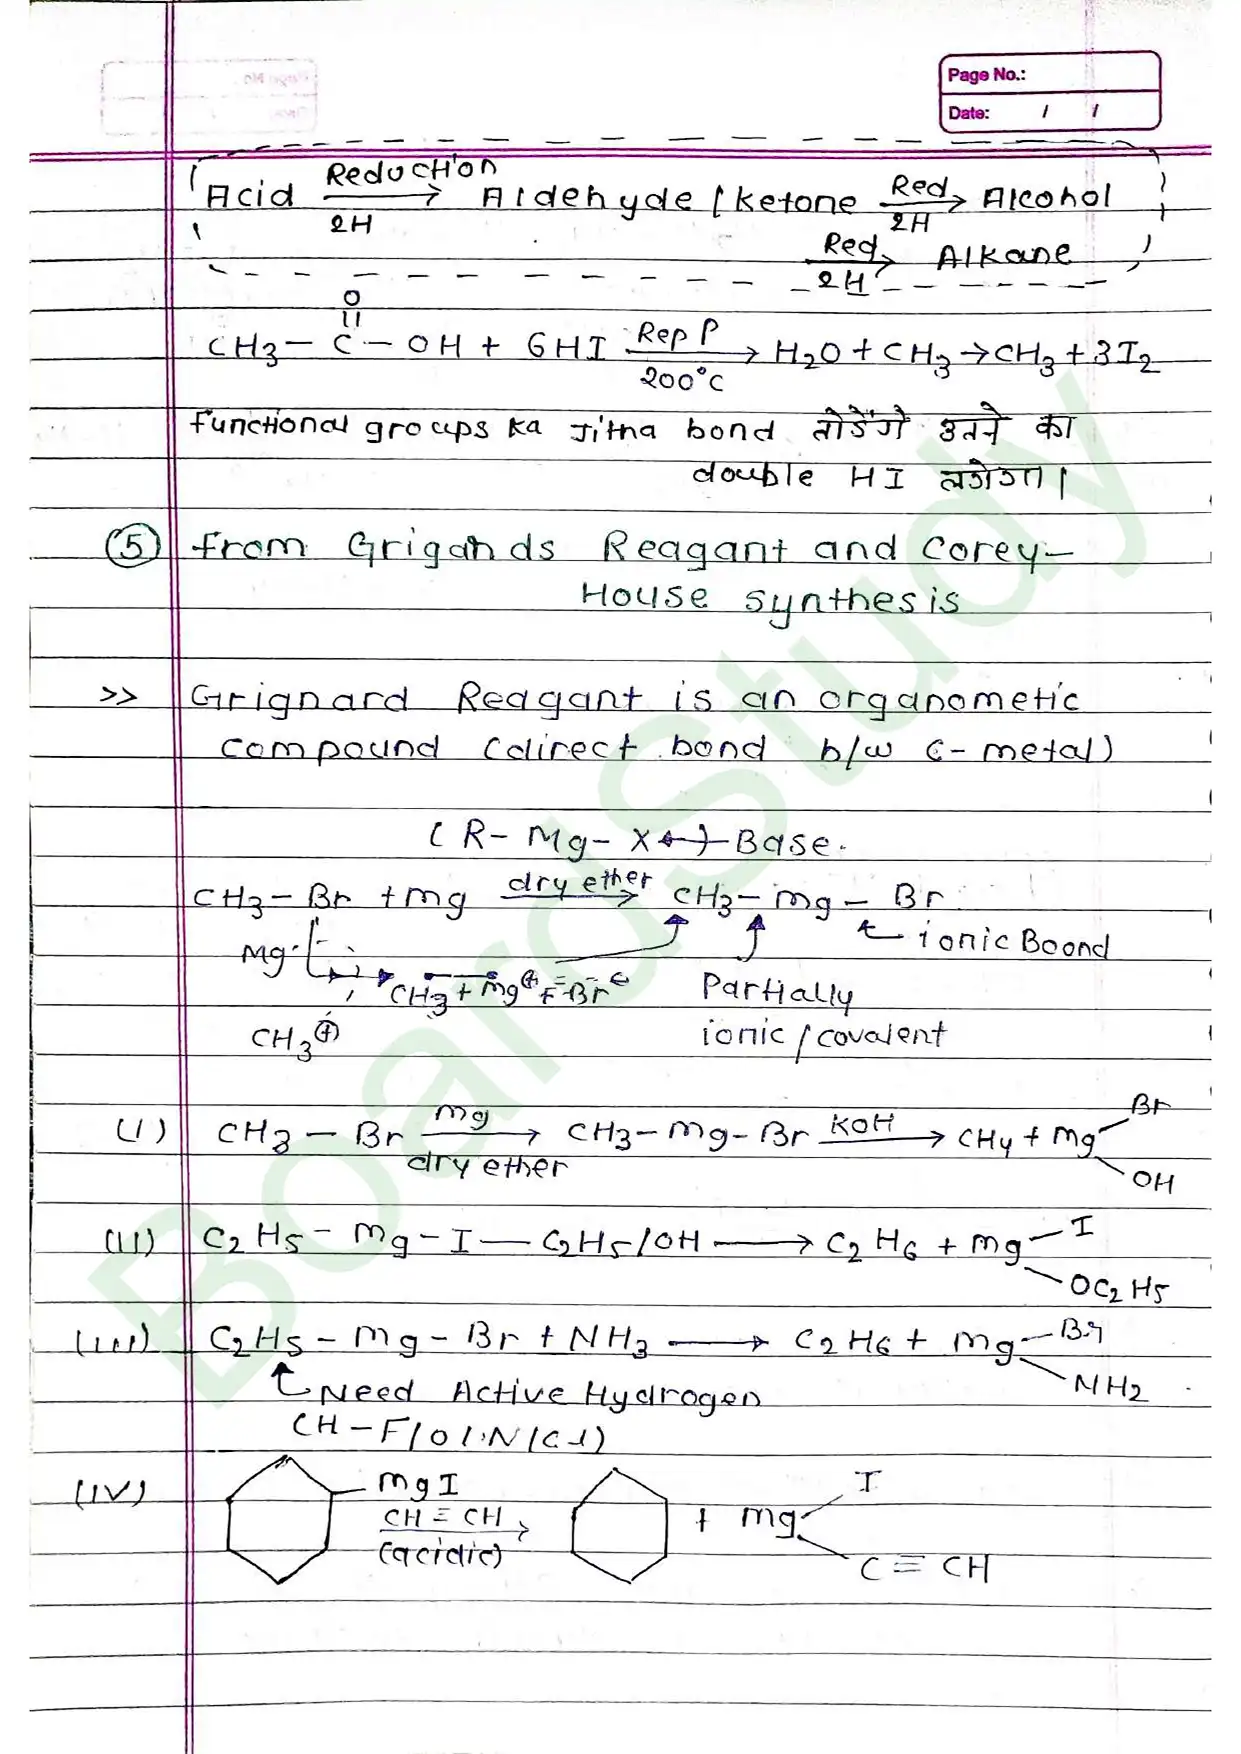 Page No.:
Date: / /
Acid Reduction → 2H Aldehyde / Ketone Red → 2H Alcohol
Red → 2H Alkane
O
||
CH3 – C – OH + 6HI Rep P → 200°C H2O + CH3 → CH3 + 3I2
functional groups ka Jitna bond तोडेंगे उतने का
double HI लगेगा।
(5) from Grigands Reagant and Corey-
House synthesis
>> Grignard Reagant is an organometic
compound (direct bond b/w C-metal)
(R- Mg- X ) Base.
CH3 – Br + Mg dry ether → CH3 – Mg – Br
ionic Boond
Mg
CH3 + Mg Br
Partially
CH3⊕
ionic / covalent
(I) CH3 – Br Mg → dry ether CH3 – Mg – Br KOH → CH4 + Mg Br OH
(II) C2H5 – Mg – I — C2H5/OH → C2H6 + Mg I OC2H5
(III) C2H5 – Mg – Br + NH3 → C2H6 + Mg Br NH2
Need Active Hydrogen
(IV) MgI CH ≡ CH → (acidic) + Mg I C ≡ CH
BoardStudy